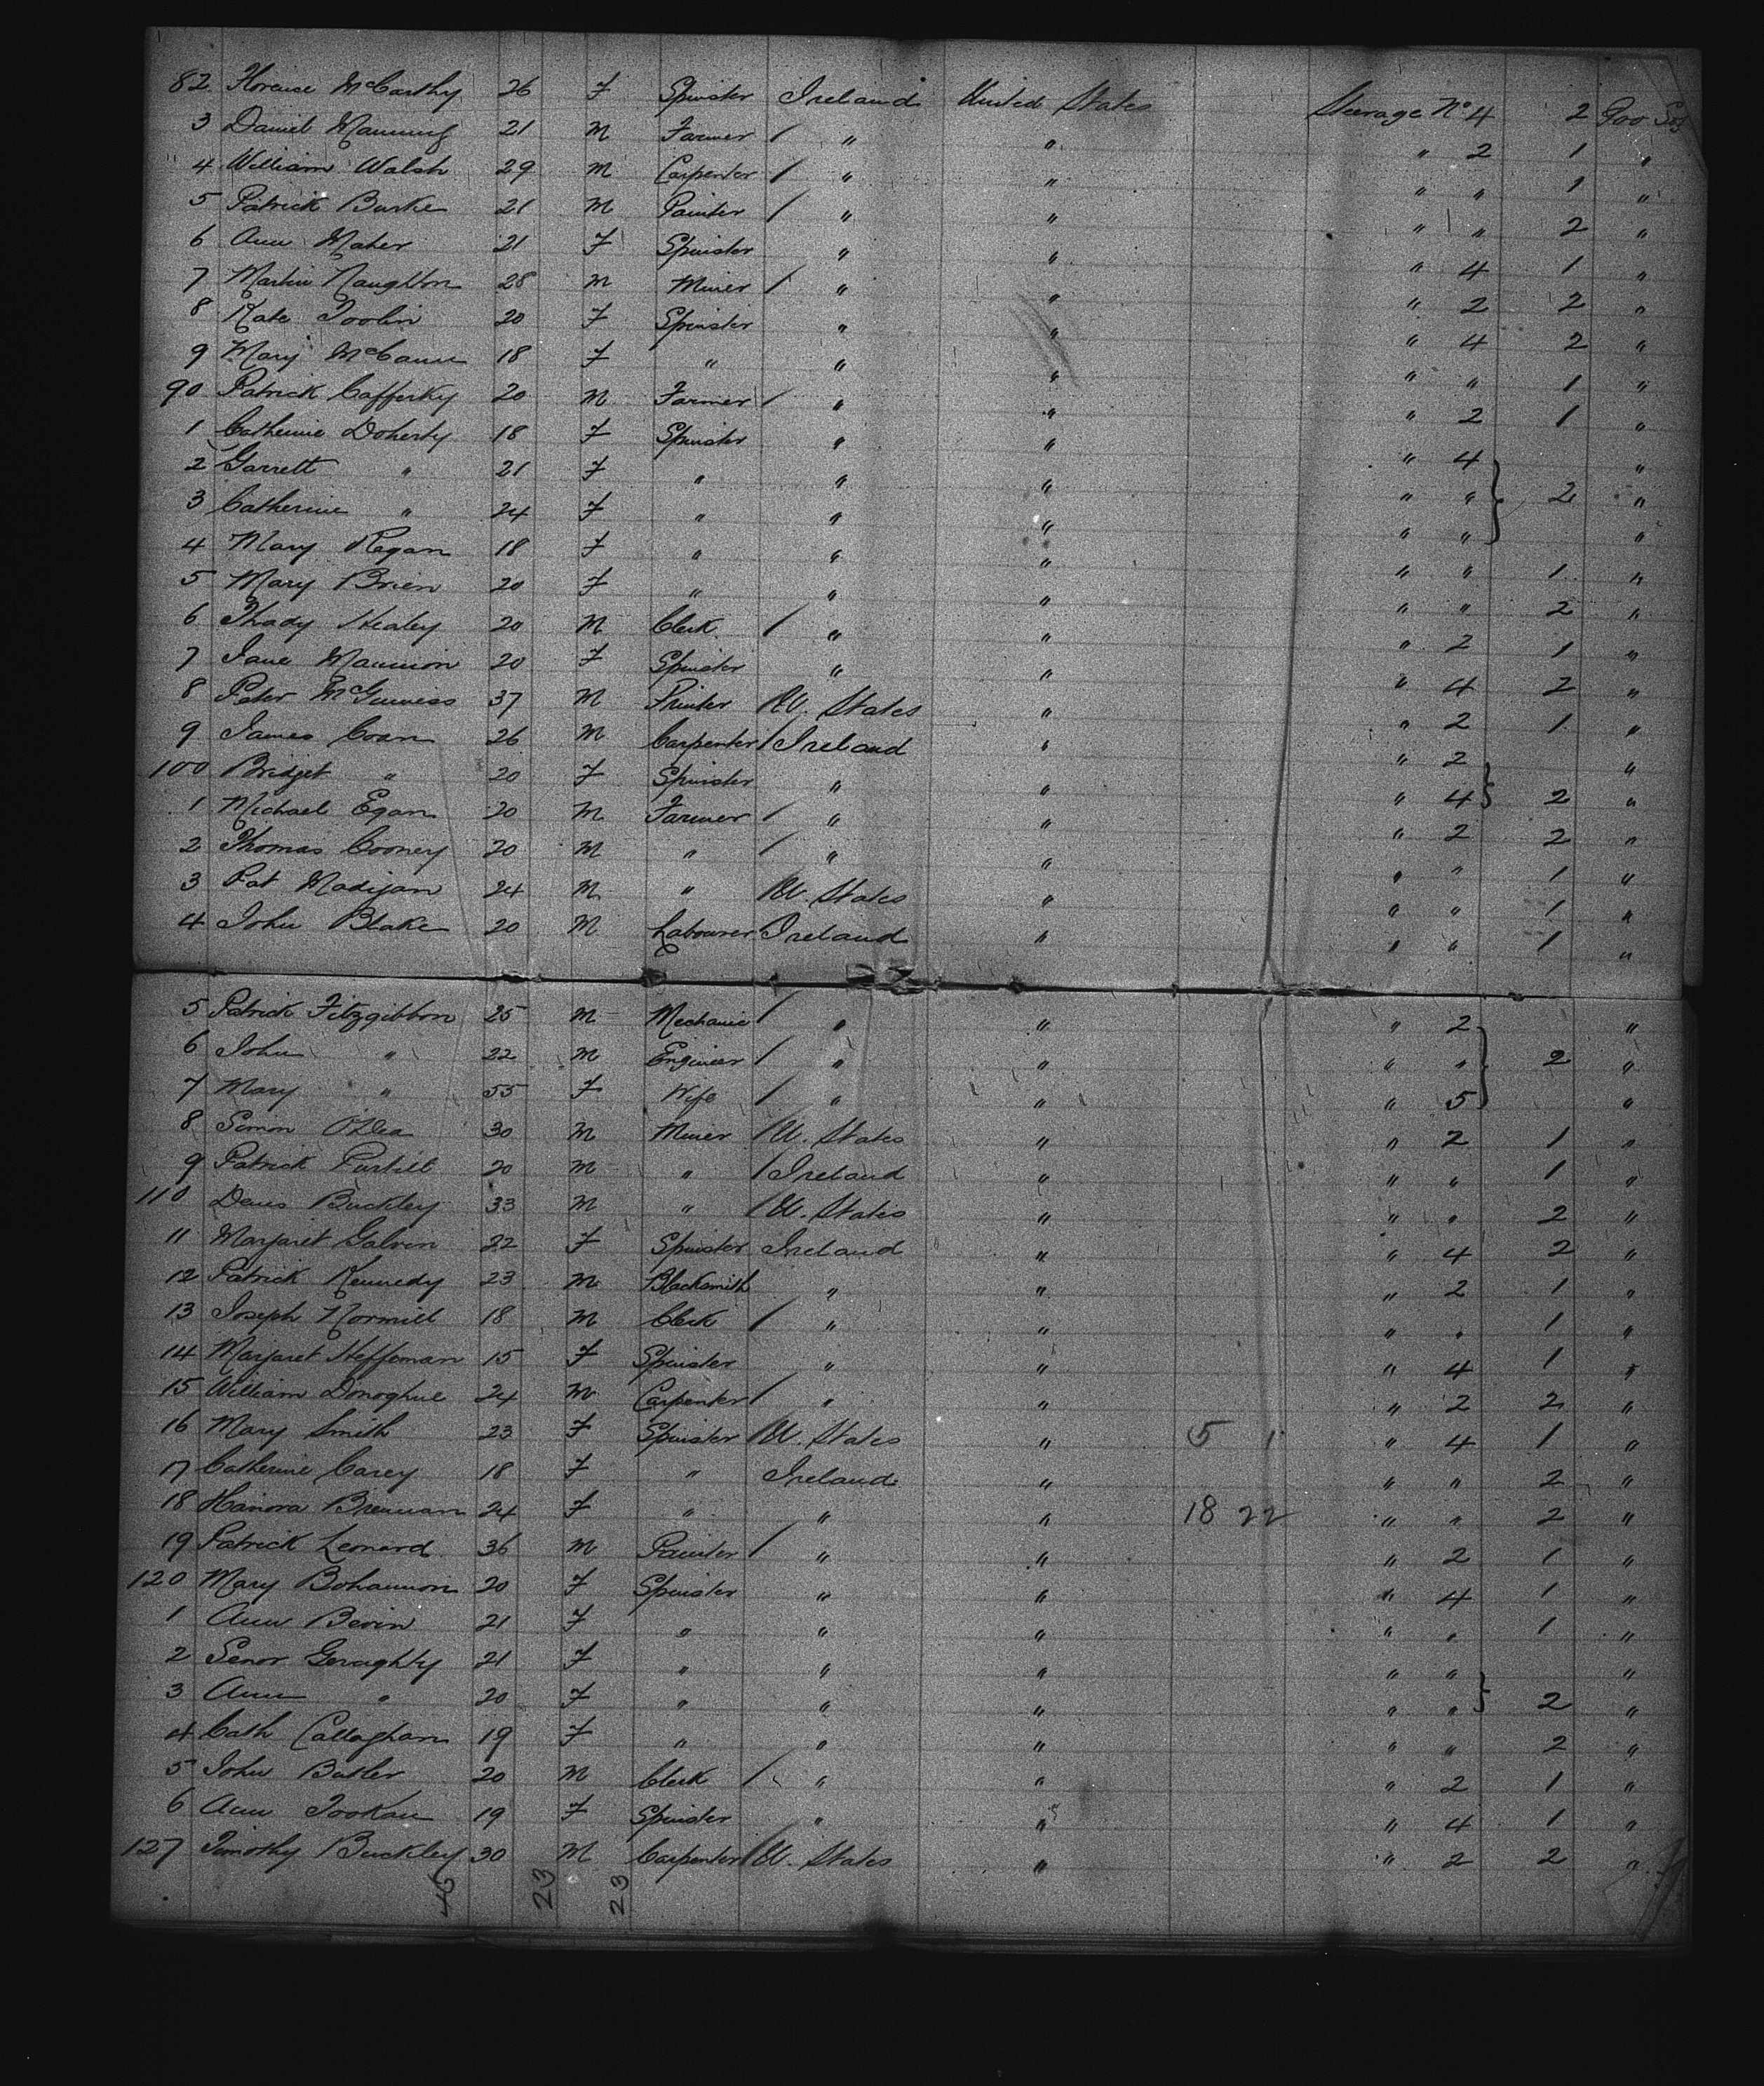 82 Florence McCarthy 26 F Spinster Ireland United States Steerage No 4 2
3 Daniel Manning 21 M Farmer / " " " 2 1 "
4 William Walsh 29 M Carpenter / " " " " 1 "
5 Patrick Burke 21 M Painter / " " " " 2 "
6 Ann Maher 21 F Spinster " " " 4 1 "
7 Martin Naughton 28 M Miner / " " " 2 2 "
8 Kate Toolin 20 F Spinster " " " 4 2 "
9 Mary McCann 18 F " " " " " 1 "
90 Patrick Cafferky 20 M Farmer / " " " 2 1 "
1 Catherine Doherty 18 F Spinster " " " 4 "
2 Garrett " 21 F " " " " " 2 "
3 Catherine " 24 F " " " " " "
4 Mary Regan 18 F " " " " " 1 "
5 Mary Brien 20 F " " " " " 2 "
6 Thady Healey 20 M Clerk / " " " 2 1 "
7 Jane Mannion 20 F Spinster " " " 4 2 "
8 Peter McGuiness 37 M Printer / U. States " " 2 1 "
9 James Coan 26 M Carpenter / Ireland " " 2 "
100 Bridget " 20 F Spinster " " " 4 2 "
1 Michael Egan 20 M Farmer / " " " 2 2 "
2 Thomas Cooney 20 M " / " " " " 1 "
3 Pat Madigan 24 M " / U. States " " " 1 "
4 John Blake 20 M Labourer Ireland " " " 1 "
5 Patrick Fitzgibbon 25 M Mechanic / " " " 2 "
6 John " 22 M Engineer / " " " " 2 "
7 Mary " 55 F Wife / " " " 5 "
8 Simon O'Dea 30 M Miner / U. States " " 2 1 "
9 Patrick Purtill 20 M " / Ireland " " " 1 "
110 Denis Buckley 33 M " / U. States " " " 2 "
11 Margaret Galvin 22 F Spinster Ireland " " 4 2 "
12 Patrick Kennedy 23 M Blacksmith " " " 2 1 "
13 Joseph Normill 18 M Clerk / " " " " 1 "
14 Margaret Heffernan 15 F Spinster " " " 4 1 "
15 William Donoghue 24 M Carpenter / " " " 2 2 "
16 Mary Smith 23 F Spinster / U. States " 5 1 " 4 1 "
17 Catherine Carey 18 F " Ireland " " " 2 "
18 Hanora Brennan 24 F " " " 18 22 " " 2 "
19 Patrick Leonard 36 M Painter / " " " 2 1 "
120 Mary Bohannon 20 F Spinster " " " 4 1 "
1 Ann Bevin 21 F " " " " " 1 "
2 Senor Geraghty 21 F " " " " " "
3 Ann " 20 F " " " " " 2 "
4 Cath Callaghan 19 F " " " " " 2 "
5 John Butler 20 M Clerk / " " " 2 1 "
6 Ann Tookan 19 F Spinster " " " 4 1 "
127 Timothy Buckley 30 M Carpenter / U. States " " 2 2 "
46 23 23